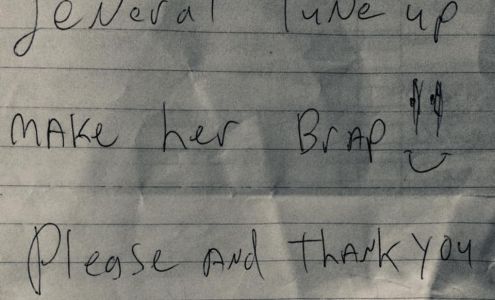 General Tune up
MAKE her BrAP!!
Please AND thANK YOU